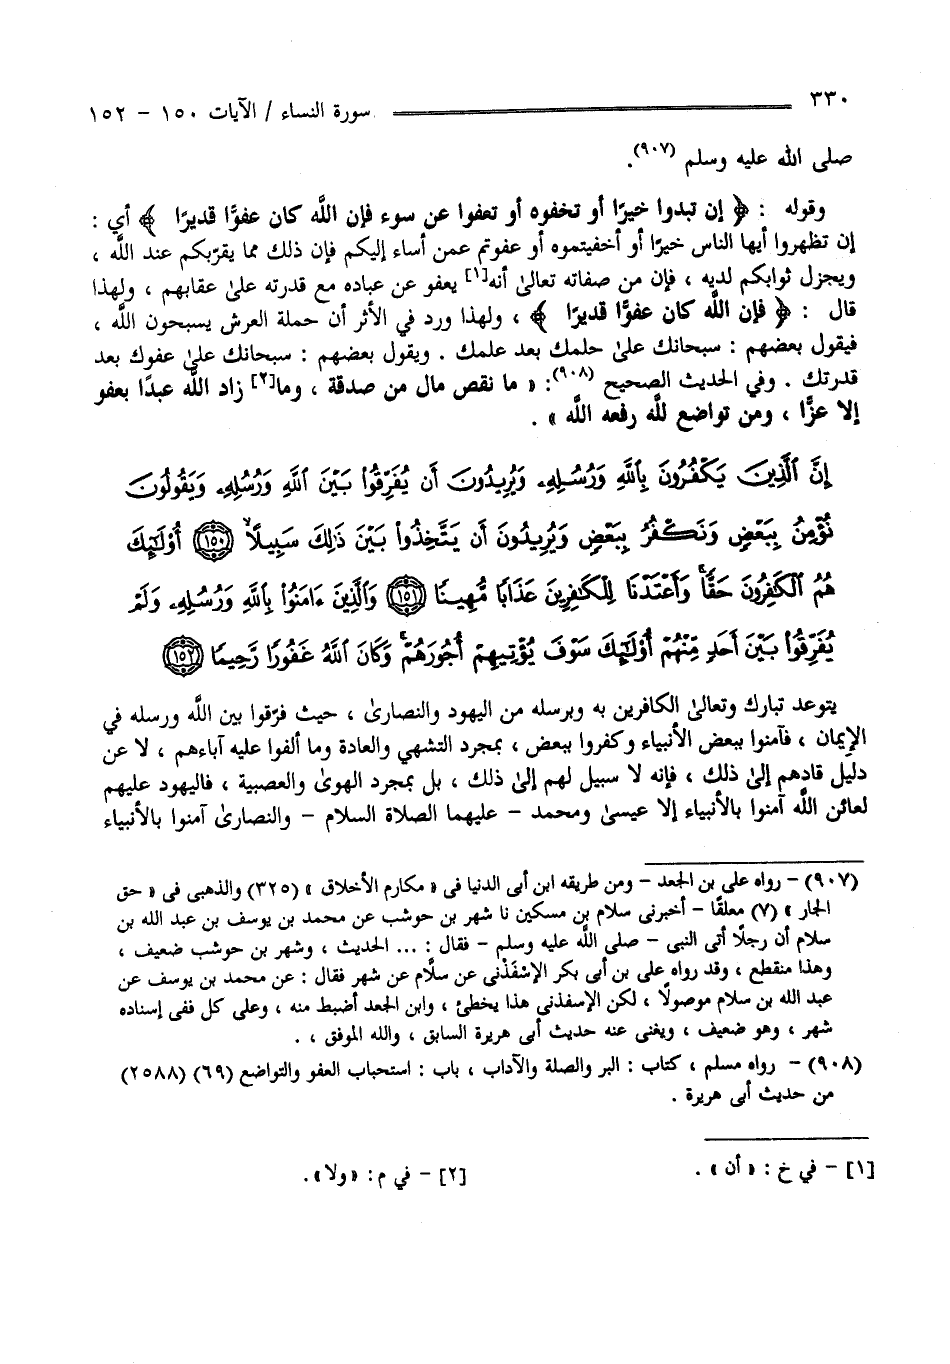 ٣٣٠ سورة النساء / الآيات ١٥٠ - ١٥٢
صلى الله عليه وسلم (٩٠٧).
وقوله : ﴿ إن تبدوا خيرًا أو تخفوه أو تعفوا عن سوء فإن اللَّه كان عفوًّا قديرًا ﴾ أي :
إن تظهروا أيها الناس خيرًا أو أخفيتموه أو عفوتم عمن أساء إليكم فإن ذلك مما يقرّبكم عند اللَّه ،
ويجزل ثوابكم لديه ، فإن من صفاته تعالىٰ أنه[١] يعفو عن عباده مع قدرته علىٰ عقابهم ، ولهذا
قال : ﴿ فإن اللَّه كان عفوًّا قديرًا ﴾ ، ولهذا ورد في الأثر أن حملة العرش يسبحون اللَّه ،
فيقول بعضهم : سبحانك علىٰ حلمك بعد علمك . ويقول بعضهم : سبحانك علىٰ عفوك بعد
قدرتك . وفي الحديث الصحيح (٩٠٨): « ما نقص مال من صدقة ، وما[٢] زاد اللَّه عبدًا بعفو
إلا عزًّا ، ومن تواضع للَّه رفعه اللَّه » .
إِنَّ ٱلَّذِينَ يَكْفُرُونَ بِٱللَّهِ وَرُسُلِهِۦ وَيُرِيدُونَ أَن يُفَرِّقُوا۟ بَيْنَ ٱللَّهِ وَرُسُلِهِۦ وَيَقُولُونَ
نُؤْمِنُ بِبَعْضٍ وَنَكْفُرُ بِبَعْضٍ وَيُرِيدُونَ أَن يَتَّخِذُوا۟ بَيْنَ ذَٰلِكَ سَبِيلًا ﴿١٥٠﴾ أُو۟لَٰٓئِكَ
هُمُ ٱلْكَٰفِرُونَ حَقًّا ۚ وَأَعْتَدْنَا لِلْكَٰفِرِينَ عَذَابًا مُّهِينًا ﴿١٥١﴾ وَٱلَّذِينَ ءَامَنُوا۟ بِٱللَّهِ وَرُسُلِهِۦ وَلَمْ
يُفَرِّقُوا۟ بَيْنَ أَحَدٍ مِّنْهُمْ أُو۟لَٰٓئِكَ سَوْفَ يُؤْتِيهِمْ أُجُورَهُمْ ۗ وَكَانَ ٱللَّهُ غَفُورًا رَّحِيمًا ﴿١٥٢﴾
يتوعد تبارك وتعالىٰ الكافرين به وبرسله من اليهود والنصارىٰ ، حيث فرّقوا بين اللَّه ورسله في
الإيمان ، فآمنوا ببعض الأنبياء وكفروا ببعض ، بمجرد التشهي والعادة وما ألفوا عليه آباءهم ، لا عن
دليل قادهم إلىٰ ذلك ، فإنه لا سبيل لهم إلىٰ ذلك ، بل بمجرد الهوىٰ والعصبية ، فاليهود عليهم
لعائن اللَّه آمنوا بالأنبياء إلا عيسىٰ ومحمد - عليهما الصلاة السلام - والنصارىٰ آمنوا بالأنبياء
(٩٠٧) - رواه على بن الجعد - ومن طريقه ابن أبى الدنيا فى « مكارم الأخلاق » (٣٢٥) والذهبى فى « حق
الجار » (٧) معلقًا - أخبرنى سلام بن مسكين نا شهر بن حوشب عن محمد بن يوسف بن عبد الله بن
سلام أن رجلًا أتى النبى - صلى اللَّه عليه وسلم - فقال : ... الحديث ، وشهر بن حوشب ضعيف ،
وهذا منقطع ، وقد رواه على بن أبى بكر الإسْفَذْنى عن سلَّام عن شهر فقال : عن محمد بن يوسف عن
عبد الله بن سلام موصولًا ، لكن الإسفذنى هذا يخطئ ، وابن الجعد أضبط منه ، وعلى كل ففى إسناده
شهر ، وهو ضعيف ، ويغنى عنه حديث أبى هريرة السابق ، والله الموفق ، .
(٩٠٨) - رواه مسلم ، كتاب : البر والصلة والآداب ، باب : استحباب العفو والتواضع (٦٩) (٢٥٨٨)
من حديث أبى هريرة .
[١] - في خ : « أن » . [٢] - في م: «ولا».